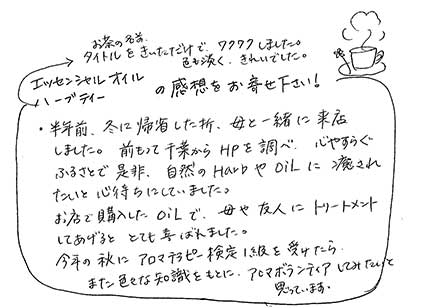 お茶の名前、
タイトルをきいただけで、ワクワクしました。
色も淡く、きれいでした。
エッセンシャルオイル
ハーブティー
の感想をお寄せ下さい！
・半年前、冬に帰省した折、母と一緒に来店
しました。前もって千葉からHPを調べ、心やすらぐ
ふるさとで是非、自然のHarbやOiLに癒され
たいと心待ちにしていました。
お店で購入したOiLで、母や友人にトリートメント
してあげると とても喜ばれました。
今年の秋にアロマテラピー検定1級を受けたら、
また色々な知識をもとに、アロマボランティアしてみたいと
思っています。